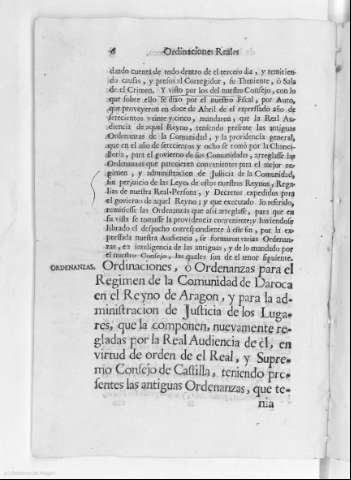 6 Ordinaciones Reales
dando cuenta de todo dentro de el tercero dia, y remitien-
do causas, y presos al Corregidor, su Theniente, ò Sala
de el Crimen. Y visto por los del nuestro Consejo, con lo
que sobre ello se dixo por el nuestro Fiscal, por Auto,
que proveyeron en doce de Abril de el expressado año de
setecientos veinte y cinco, mandaron, que la Real Au-
diencia de aquel Reyno, teniendo presente las antiguas
Ordenanzas de la Comunidad, y la providencia general,
que en el año de setecientos y ocho se tomò por la Chanci-
llería, para el govierno de sus Comunidades, arreglasse las
Ordenanzas que pareciessen convenientes para el mejor re-
gimen, y administracion de Justicia de la Comunidad,
sin perjuicio de las Leyes de estos nuestros Reynos, Rega-
lias de nuestra Real-Persona, y Decretos expedidos para
el govierno de aquel Reyno; y que executado lo referido,
remitiesse las Ordenanzas que assi arreglasse, para que en
su vista se tomasse la providencia conveniente; y haviendose
librado el despacho correspondiente à este fin, por la ex-
pressada nuestra Audiencia, se formaron varias Ordenan-
zas, en inteligencia de las antiguas, y de lo mandado por
el nuestro Consejo, las quales son de el tenor siguiente.
ORDENANZAS. Ordinaciones, ò Ordenanzas para el
Regimen de la Comunidad de Daroca
en el Reyno de Aragon, y para la ad-
ministracion de Justicia de los Luga-
res, que la componen, nuevamente re-
gladas por la Real Audiencia de èl, en
virtud de orden de el Real, y Supre-
mo Consejo de Castilla, teniendo pre-
sentes las antiguas Ordenanzas, que te-
nia